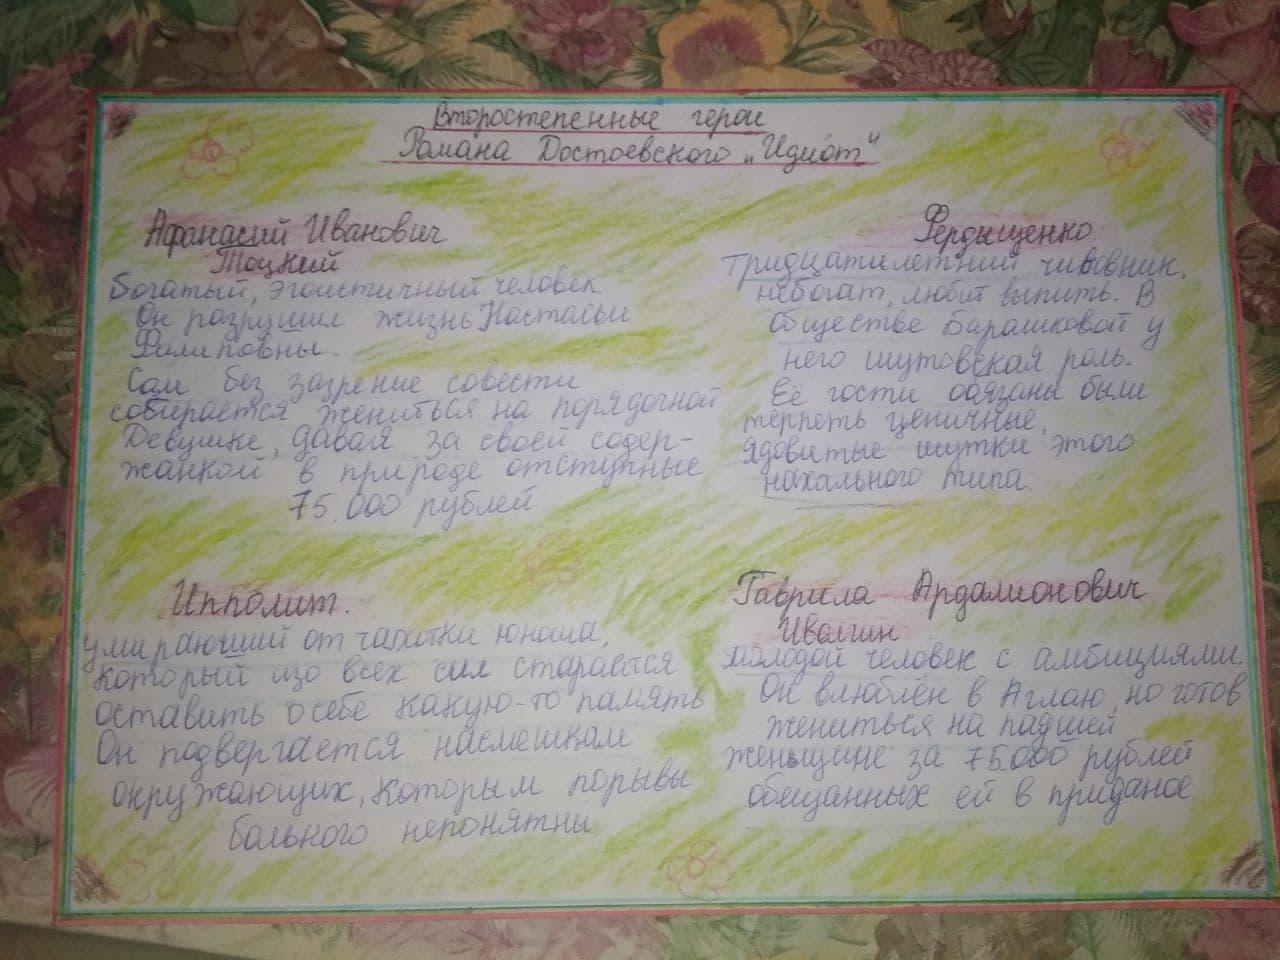 Второстепенные герои
Романа Достоевского „Идиот"
Афанасий Иванович
Тоцкий
Богатый, эгоистичный человек.
Он разрушил жизнь Настасьи
Филиповны.
Сам без зазрение совести
собирается жениться на порядочной
Девушке, давая за своей содер-
жанкой в природе отступные
75.000 рублей
Фердыщенко
Тридцатилетний чиновник,
небогат, любит выпить. В
обществе Барашковой у
него шутовская роль.
Её гости обязаны были
терпеть ценичные,
ядовитые шутки этого
нахального типа.
Ипполит.
умирающий от чахотки юноша,
который изо всех сил старается
оставить о себе какую-то память
Он подвергается насмешкам
окружающих, которым порывы
больного непонятны
Гаврила Ардалионович
Иволгин
молодой человек с амбициями.
Он влюблён в Аглаю, но готов
жениться на падшей
женьщине за 75.000 рублей
обещанных ей в приданое